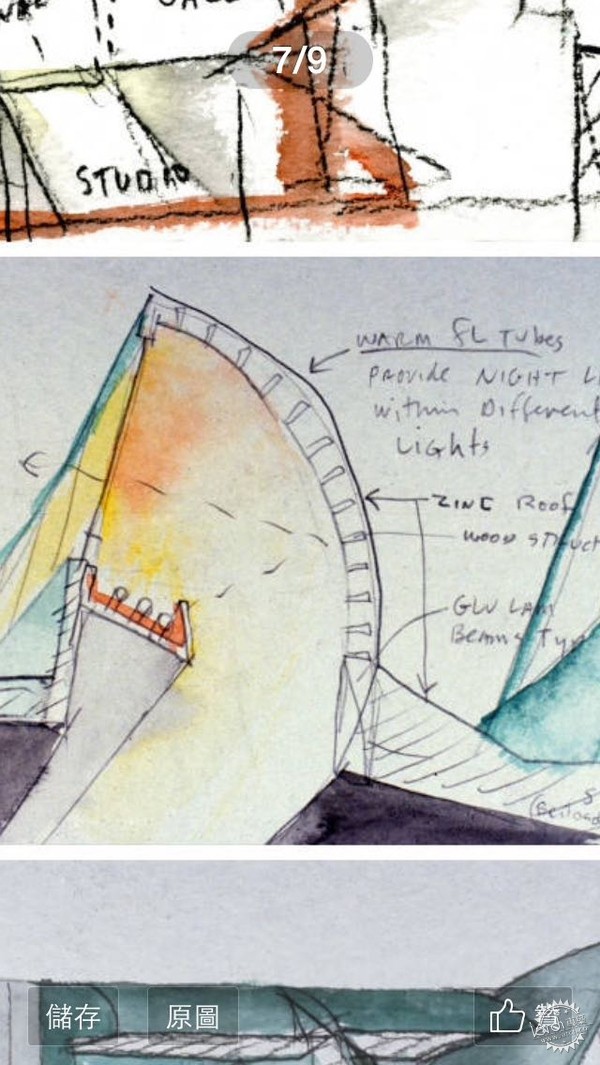 7/9
STUDIO
WARM FL TUBES
PROVIDE NIGHT
within Different
Lights
ZINC ROOF
WOOD
GLU LAM
Beams
儲存
原圖